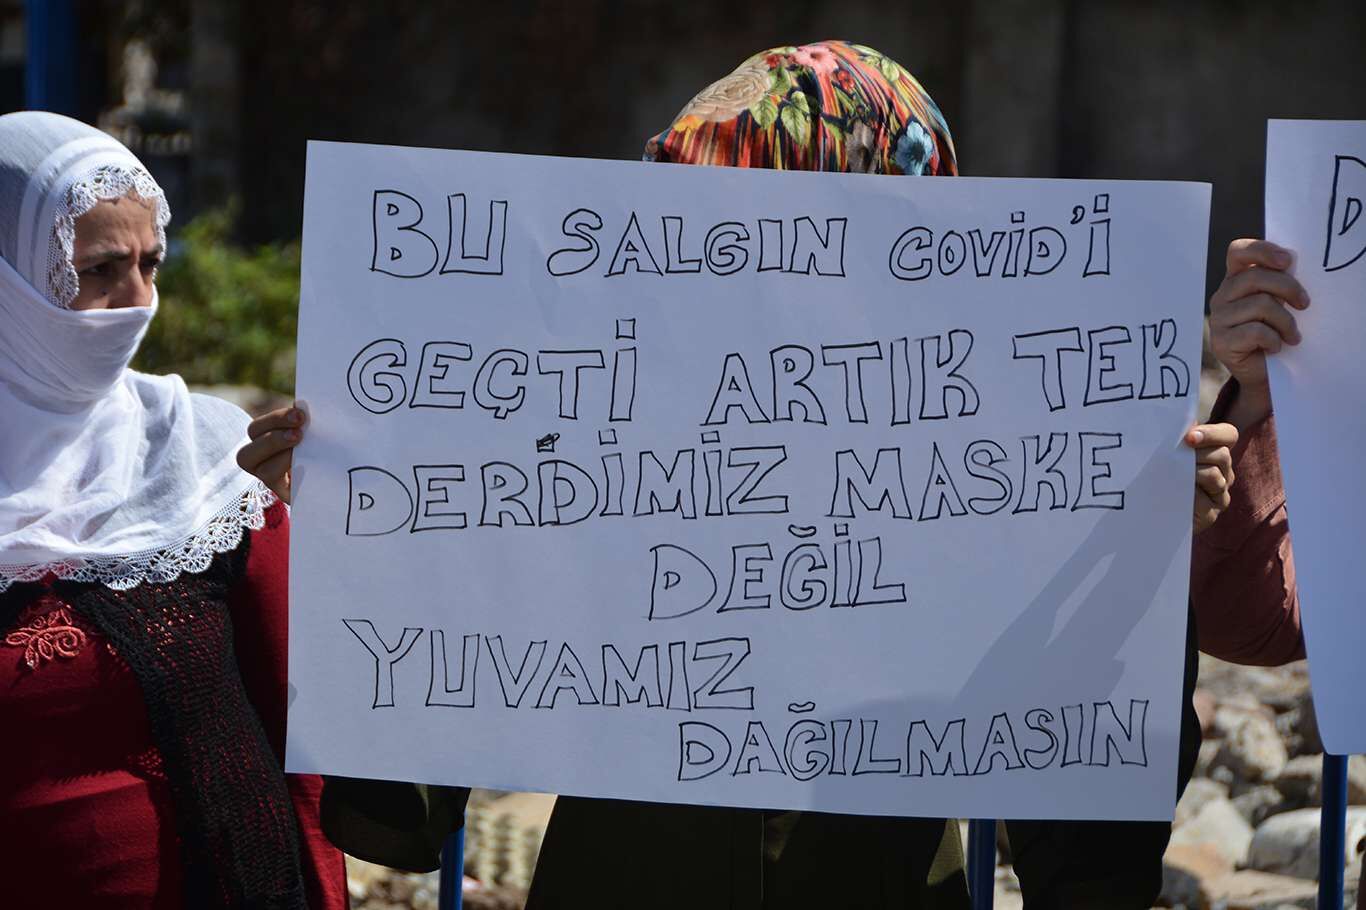 BU SALGIN COVİD'İ
GEÇTİ ARTIK TEK
DERDİMİZ MASKE
DEĞİL
YUVAMIZ
DAĞILMASIN
D